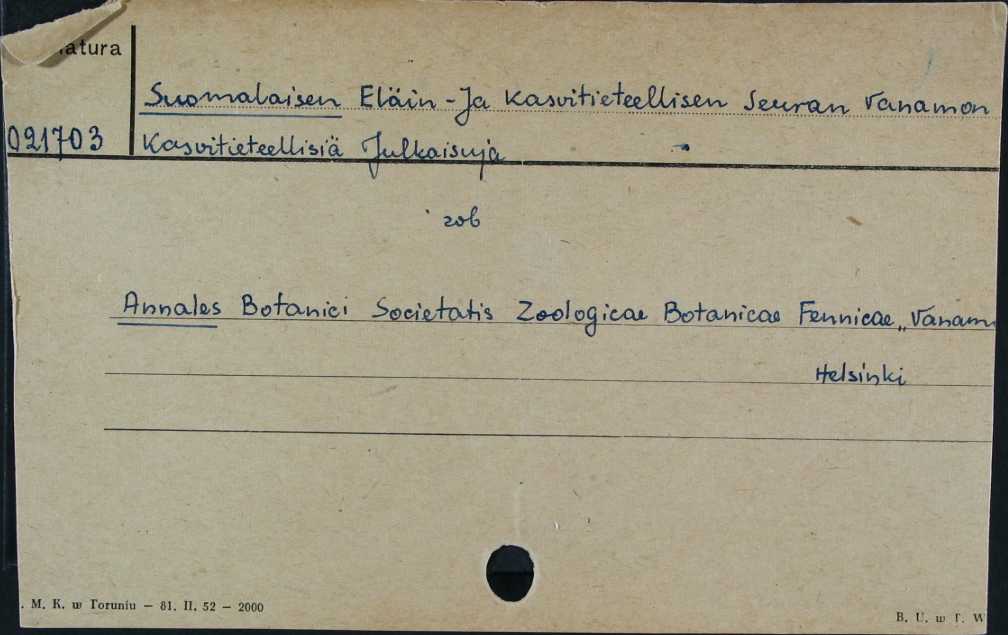 natura
Suomalaisen Eläin-Ja Kasvitieteellisen Seuran Vanamon
021703
Kasvitieteellisiä Julkaisuja
zob
Annales Botanici Societatis Zoologicae Botanicae Fennicae „Vanam
Helsinki
. M. K. w Toruniu — 81. II. 52 — 2000
B. U. w T. W